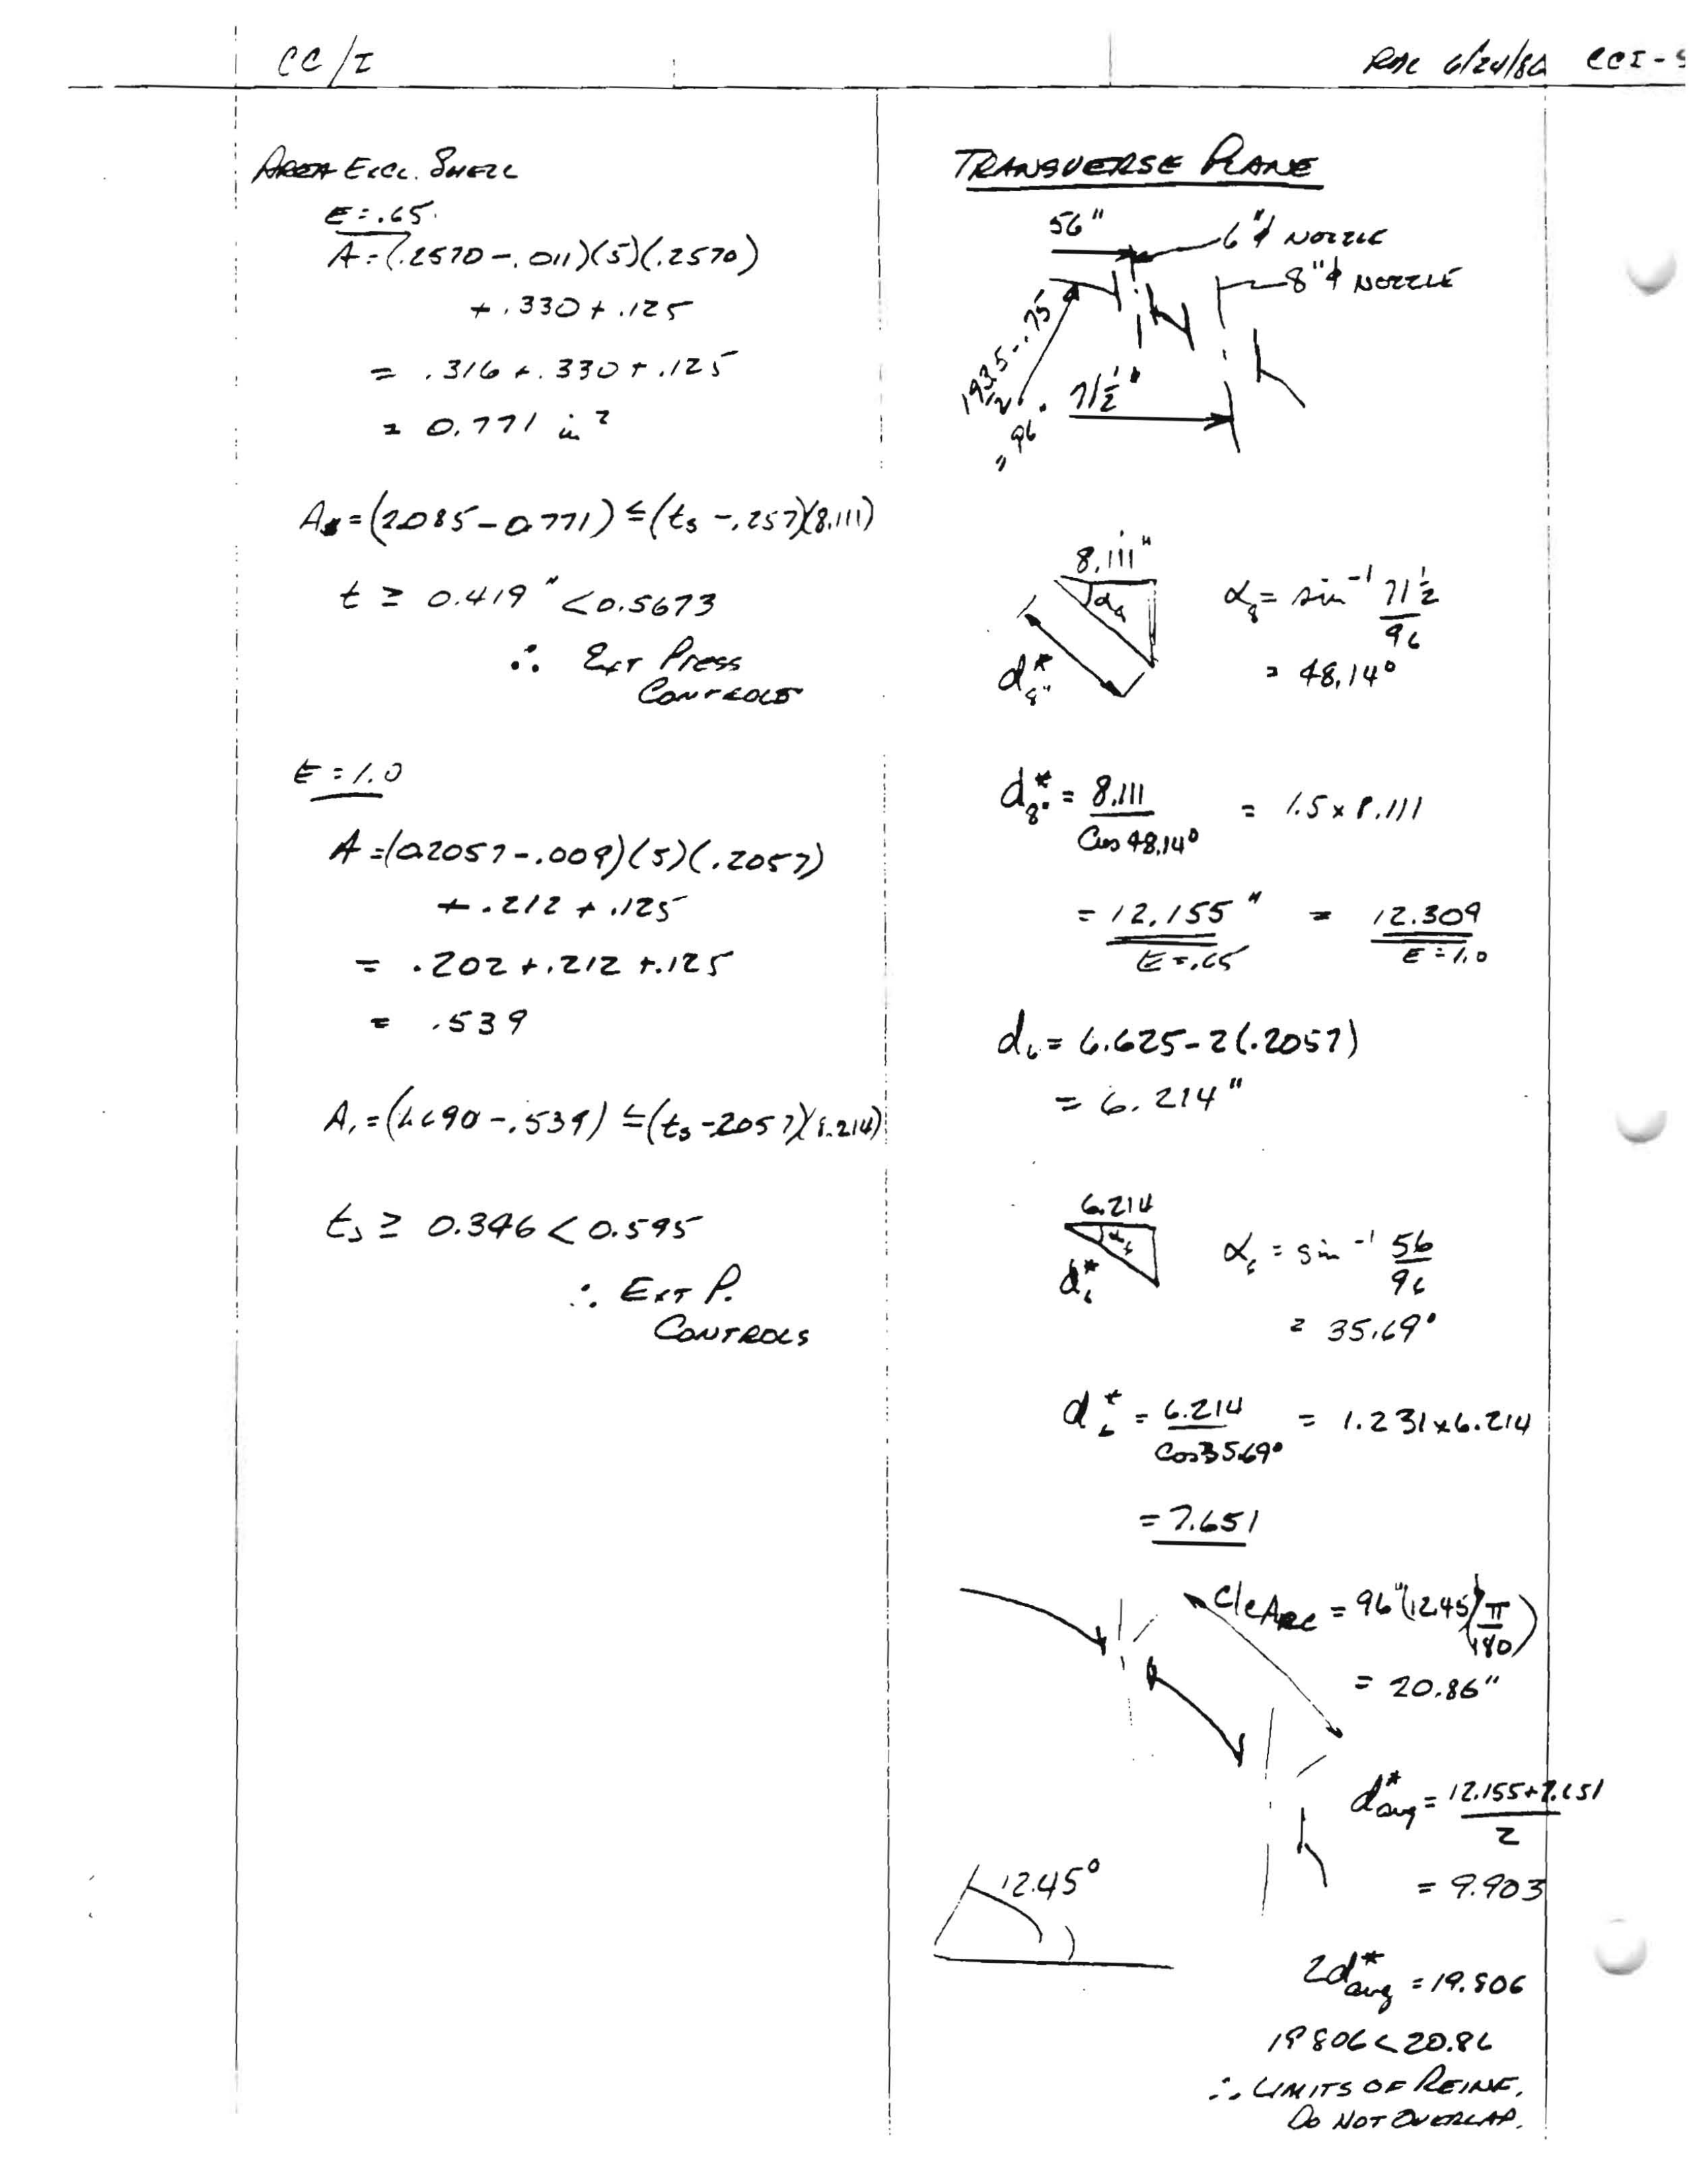 CC/I
RMC 6/24/86 CCI-5
AREA EXCL. SHELL
E = .65
A = (.2570 - .011)(5)(.2570)
+ .330 + .125
= .316 + .330 + .125
= 0.771 in²
A = (2.085 - 0.771) ≤ (ts - .257)(8.111)
t ≥ 0.419" < 0.5673
∴ EXT PRESS
CONTROLS
E = 1.0
A = (0.2057 - .009)(5)(.2057)
+ .212 + .125
= .202 + .212 + .125
= .539
A₁ = (1.690 - .539) ≤ (ts - .2057)(8.214)
ts ≥ 0.346 < 0.595
∴ EXT P.
CONTROLS
TRANSVERSE PLANE
56"
6"ϕ NOZZLE
8"ϕ NOZZLE
193.5 - .75
/2
= 96"
71½"
8.111"
α8
d*8"
α8 = sin⁻¹ 71½
96
= 48.14°
d*8" = 8.111 = 1.5 x 8.111
Cos 48.14°
= 12.155" = 12.309
E = .65 E = 1.0
d6 = 6.625 - 2(.2057)
= 6.214"
6.214
α6
d*6
α6 = sin⁻¹ 56
96
= 35.69°
d*6 = 6.214 = 1.231 x 6.214
Cos 35.69°
= 7.651
C/C ARC = 96"(12.45)(π
180)
= 20.86"
d*avg = 12.155 + 7.651
2
= 9.903
12.45°
2d*avg = 19.806
19.806 < 20.86
∴ LIMITS OF REINF.
DO NOT OVERLAP.